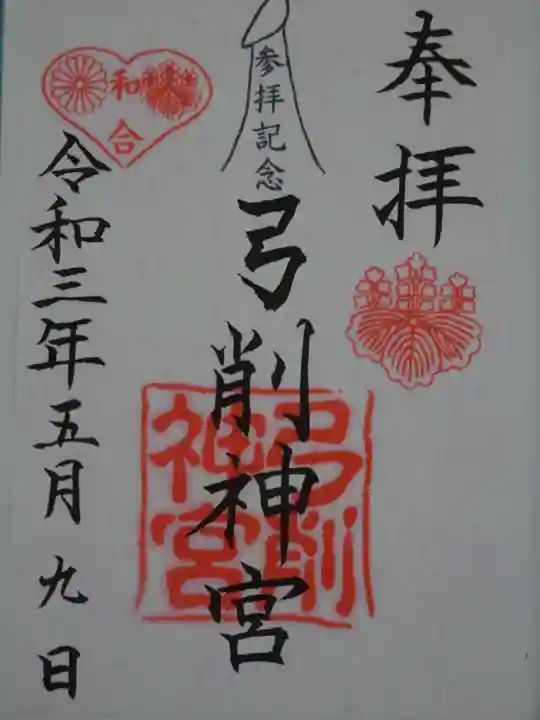 奉拝
参拝記念
弓削神宮
弓削
神宮
和合
令和三年五月九日